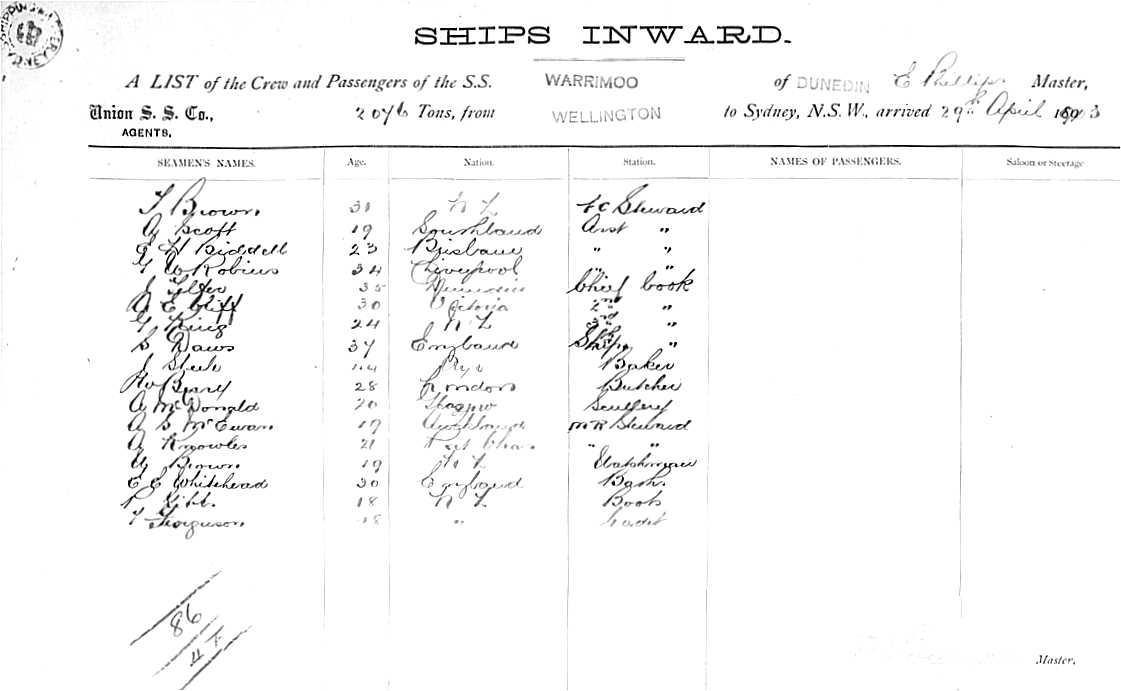 SHIPS INWARD.
A LIST of the Crew and Passengers of the S.S. WARRIMOO of DUNEDIN E Phillips Master,
Union S. S. Co., 2076 Tons, from WELLINGTON to Sydney, N.S.W., arrived 29th April
AGENTS,
SEAMEN'S NAMES. Age. Nation. Station. NAMES OF PASSENGERS. Saloon or Steerage
T Brown 31 N Z F C Steward
A Scott 19 Southland Asst "
H Biddell 23 Brisbane " "
G W Robins 34 Liverpool " "
J 35 Dunedin Chief Cook
E Cliff 30 Victoria 2nd "
G King 24 N Z 3rd "
S Daws 37 England Ships "
J Baker
Barry 28 London Butcher
A McDonald 20 Glasgow Scullery
A S McEwan 19 Auckland M R Steward
A Knowles 21 " "
Brown 19 N Z Watchman
E E Whitehead 30 England Bath.
18 N Z Boots
T Ferguson 18 " Cadet
86
Master.